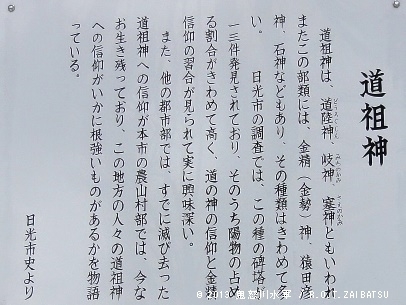 道祖神
道祖神は、道陸神、岐神、塞神ともいわれ
またこの部類には、金精（金勢）神、猿田彦
神、石神などもあり、その種類はきわめて多
い。　日光市の調査では、この種の碑塔が
一三件発見されており、そのうち陽物の占め
る割合がきわめて高く、道の神の信仰と金精
信仰の習合が見られて実に興味深い。
また、他の都市部では、すでに滅び去った
道祖神への信仰が本市の農山村部では、今な
お生き残っており、この地方の人々の道祖神
への信仰がいかに根強いものがあるかを物語
っている。
日光市史より